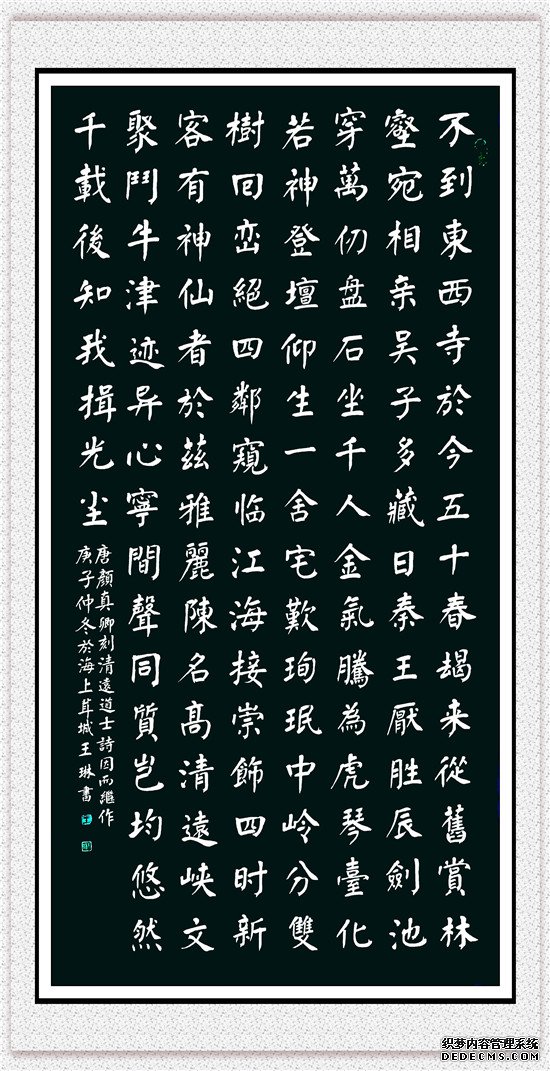 不到東西寺於今五十春朅来從舊賞林
壑宛相亲吴子多藏日秦王厭胜辰劍池
穿萬仞盘石坐千人金氣騰為虎琴臺化
若神登壇仰生一舍宅歎珣珉中岭分雙
樹回峦絕四鄰窺临江海接崇飾四时新
客有神仙者於茲雅麗陳名高清遠峡文
聚鬥牛津迹异心寧間聲同質岂均悠然
千載後知我揖光尘
唐顏真卿刻清遠道士詩因而繼作
庚子仲冬於海上茸城王琳書
织梦内容管理系统
DEDECMS.COM